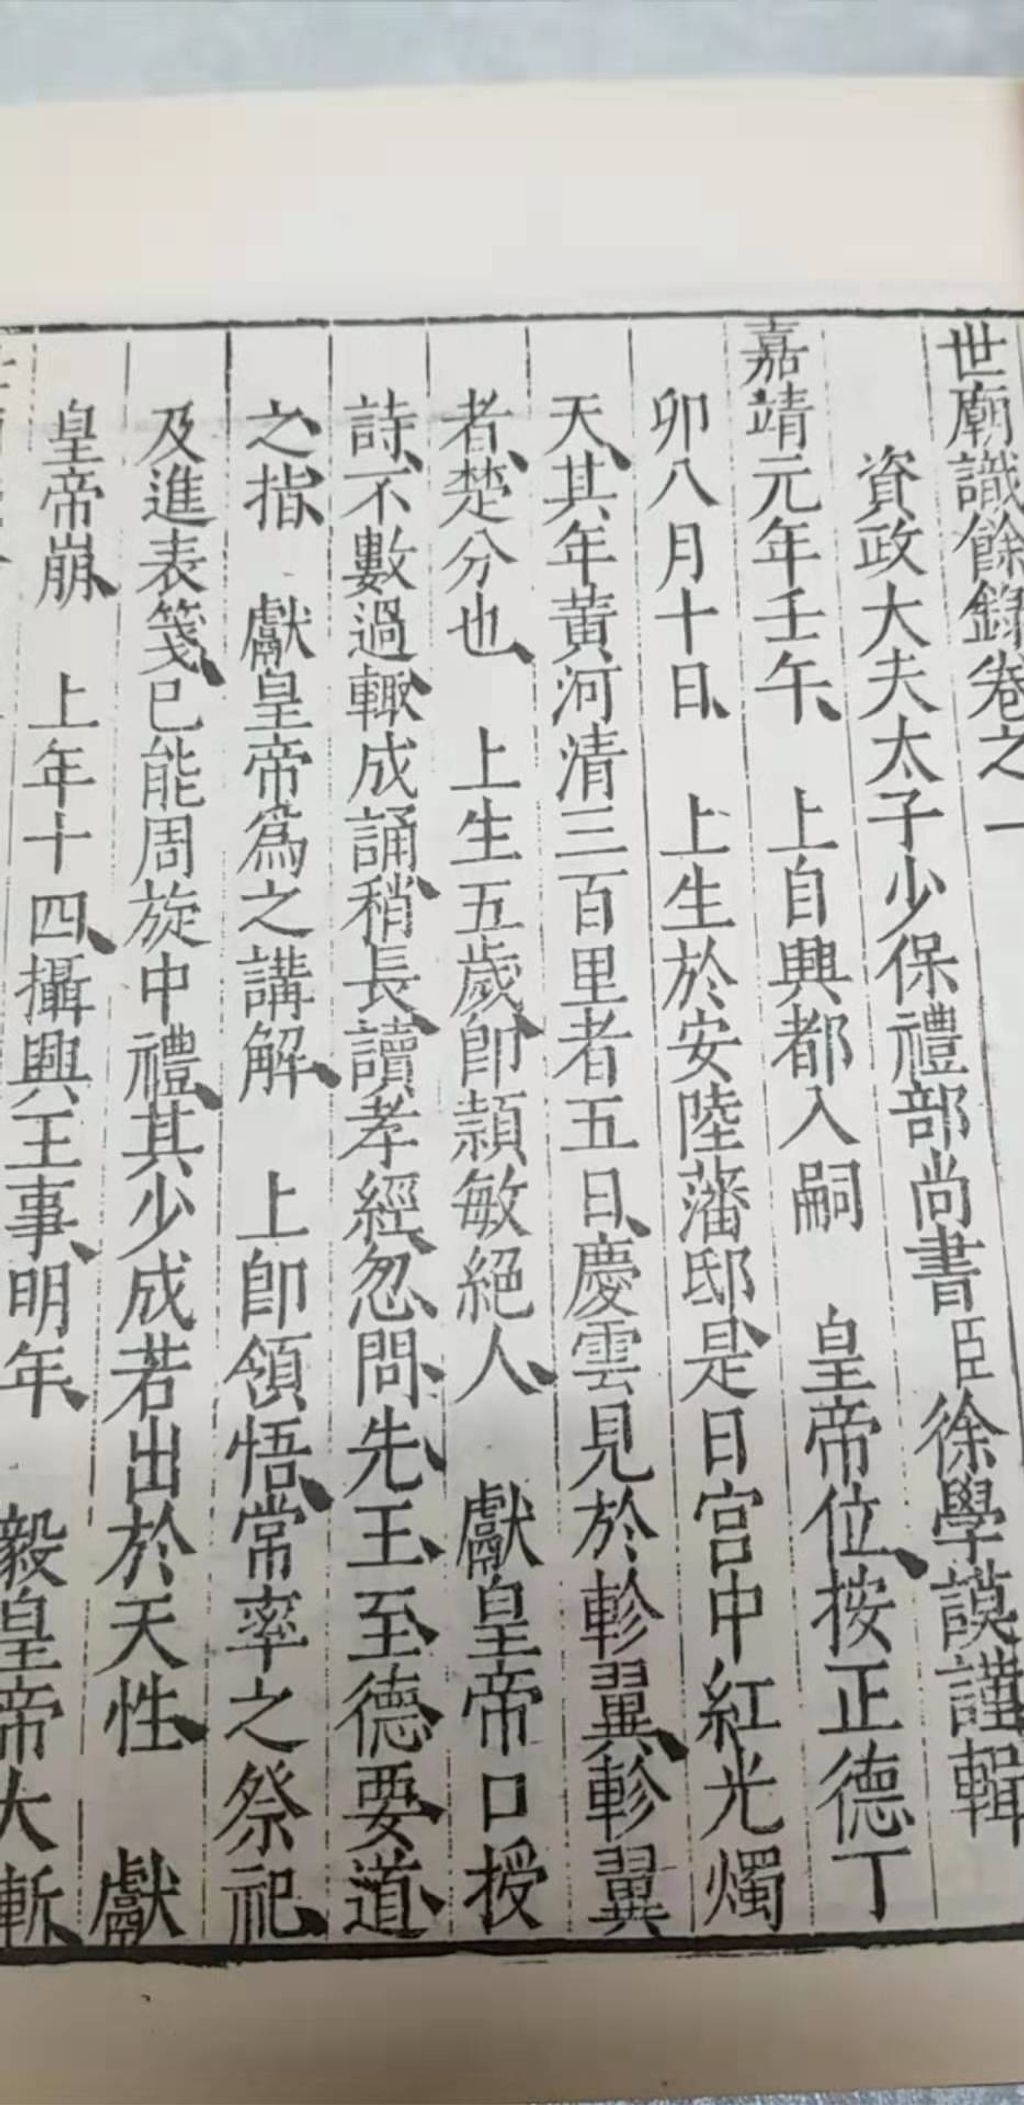 世廟識餘錄卷之一
資政大夫太子少保禮部尚書臣徐學謨謹輯
嘉靖元年壬午、上自興都入嗣　皇帝位、按正德丁
卯八月十日、上生於安陸藩邸、是日宮中紅光燭
天、其年黃河清三百里者五日、慶雲見於軫翼、軫翼
者、楚分也、上生五歲、卽穎敏絕人、獻皇帝口授
詩、不數過、輒成誦、稍長、讀孝經、忽問、先王、至德要道、
之指、獻皇帝爲之講解、上卽領悟、常率之祭祀、
及進表箋、已能周旋中禮、其少成若出於天性、獻
皇帝崩、上年十四、攝興王事、明年、毅皇帝大漸、